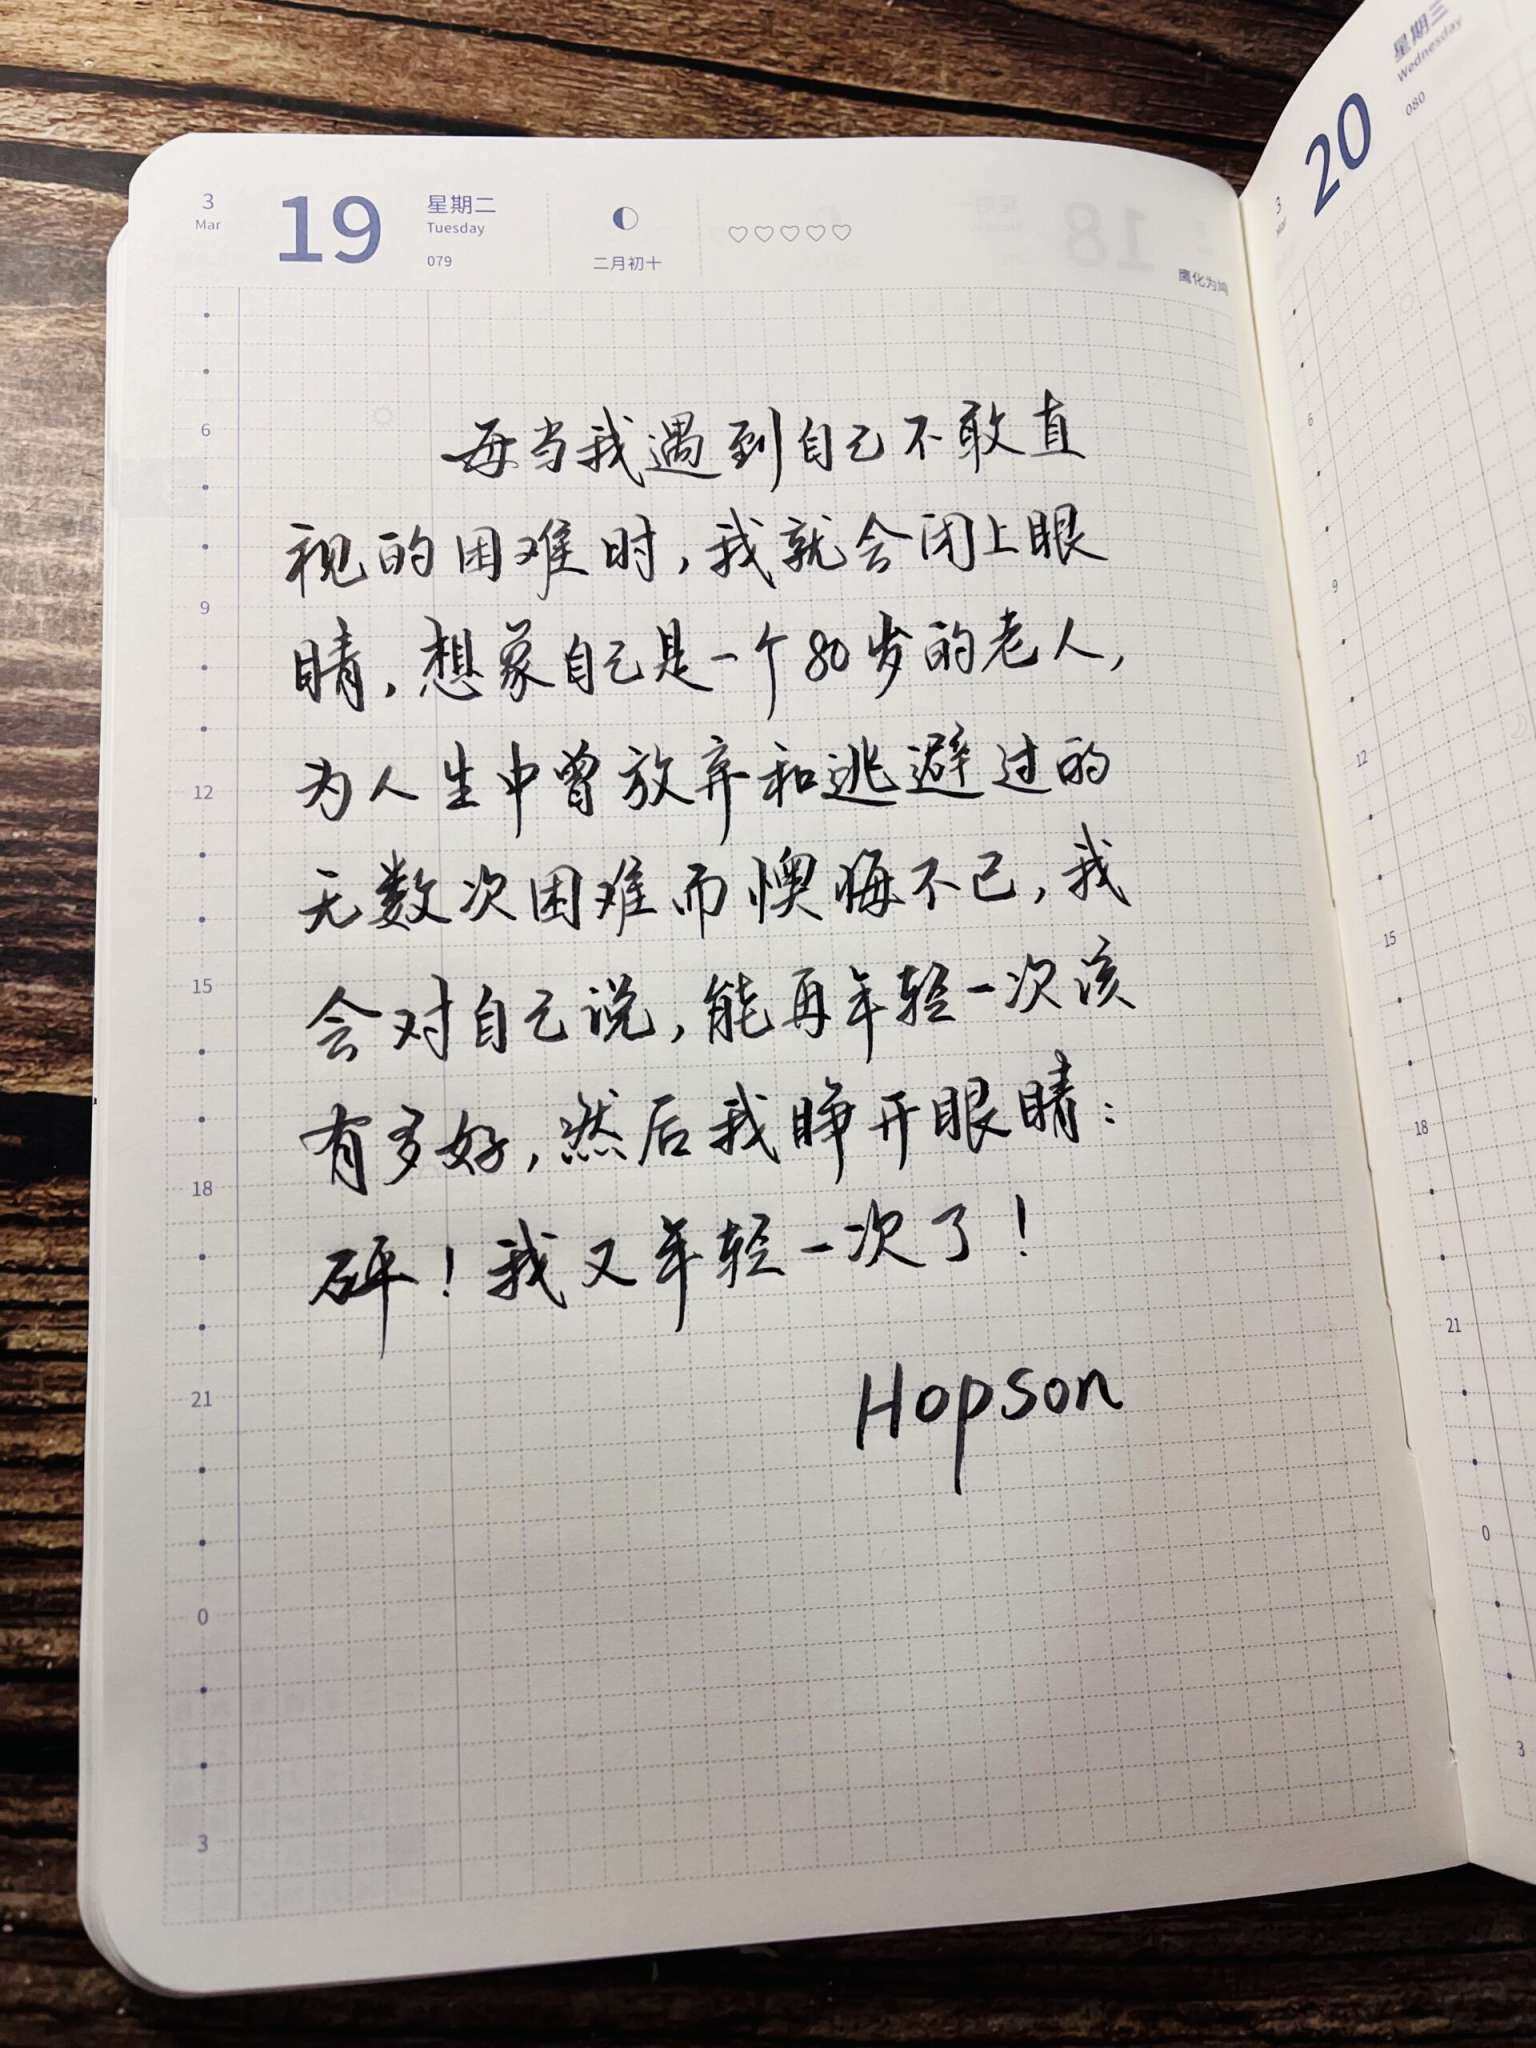 3
Mar
19
星期二
Tuesday
079
二月初十
鹰化为鸠
6
9
12
15
18
21
0
3
每当我遇到自己不敢直
视的困难时,我就会闭上眼
睛,想象自己是一个80岁的老人,
为人生中曾放弃和逃避过的
无数次困难而懊悔不已,我
会对自己说,能再年轻一次该
有多好,然后我睁开眼睛:
砰!我又年轻一次了!
Hopson
3
Mar
20
星期三
Wednesday
080
6
9
12
15
18
21
0
3